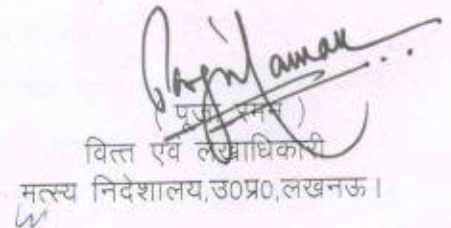 ( पूजा रमन )
वित्त एवं लेखाधिकारी
मत्स्य निदेशालय,उ0प्र0,लखनऊ।